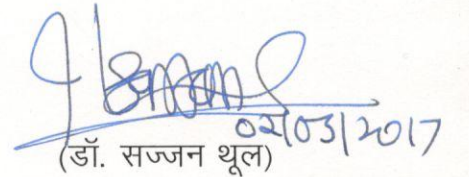 02/03/2017
(डॉ. सज्जन थूल)